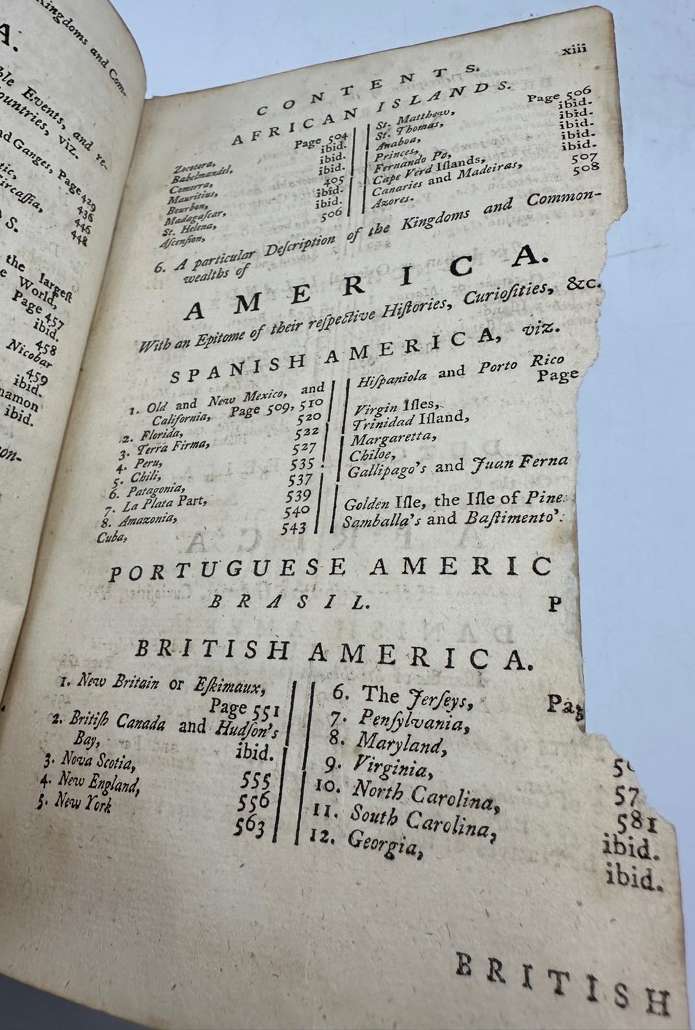 Kingdoms and Com-
A.
ble Events, and re-
ountries, viz.
nd Ganges, Page 429
tic, 436
ircaſſia, 446
448
S.
the largeſt
e World,
Page 457
ibid.
458
Nicobar
459
ibid.
namon
ibid.
on-
xiii
CONTENTS.
AFRICAN ISLANDS.
Zocotora, Page 504
Babelmandel, ibid.
Comorra, ibid.
Mauritius, ibid.
Bourbon, 405
Madagaſcar, ibid.
St. Helena, ibid.
Aſcenſion, 506
St. Matthew, Page 506
St. Thomas, ibid.
Anaboa, ibid.
Princes, ibid.
Fernando Po, ibid.
Cape Verd Iſlands, ibid.
Canaries and Madeiras, 507
Azores. 508
6. A particular Deſcription of the Kingdoms and Common-
wealths of
AMERICA.
With an Epitome of their reſpective Hiſtories, Curioſities, &c.
SPANISH AMERICA, viz.
1. Old and New Mexico, and
California, Page 509, 510
2. Florida, 520
3. Terra Firma, 522
4. Peru, 527
5. Chili, 535
6. Patagonia, 537
7. La Plata Part, 539
8. Amazonia, 540
Cuba, 543
Hiſpaniola and Porto Rico
Page
Virgin Iſles,
Trinidad Iſland,
Margaretta,
Chiloe,
Gallipago's and Juan Ferna
Golden Iſle, the Iſle of Pine
Samballa's and Baſtimento'
PORTUGUESE AMERIC
BRASIL. P
BRITISH AMERICA.
1. New Britain or Eſkimaux,
Page 551
2. Britiſh Canada and Hudſon's
Bay, ibid.
3. Nova Scotia, 555
4. New England, 556
5. New York 563
6. The Jerſeys, Pag
7. Penſylvania,
8. Maryland,
9. Virginia,
10. North Carolina, 57
11. South Carolina, 581
12. Georgia, ibid.
ibid.
BRITISH